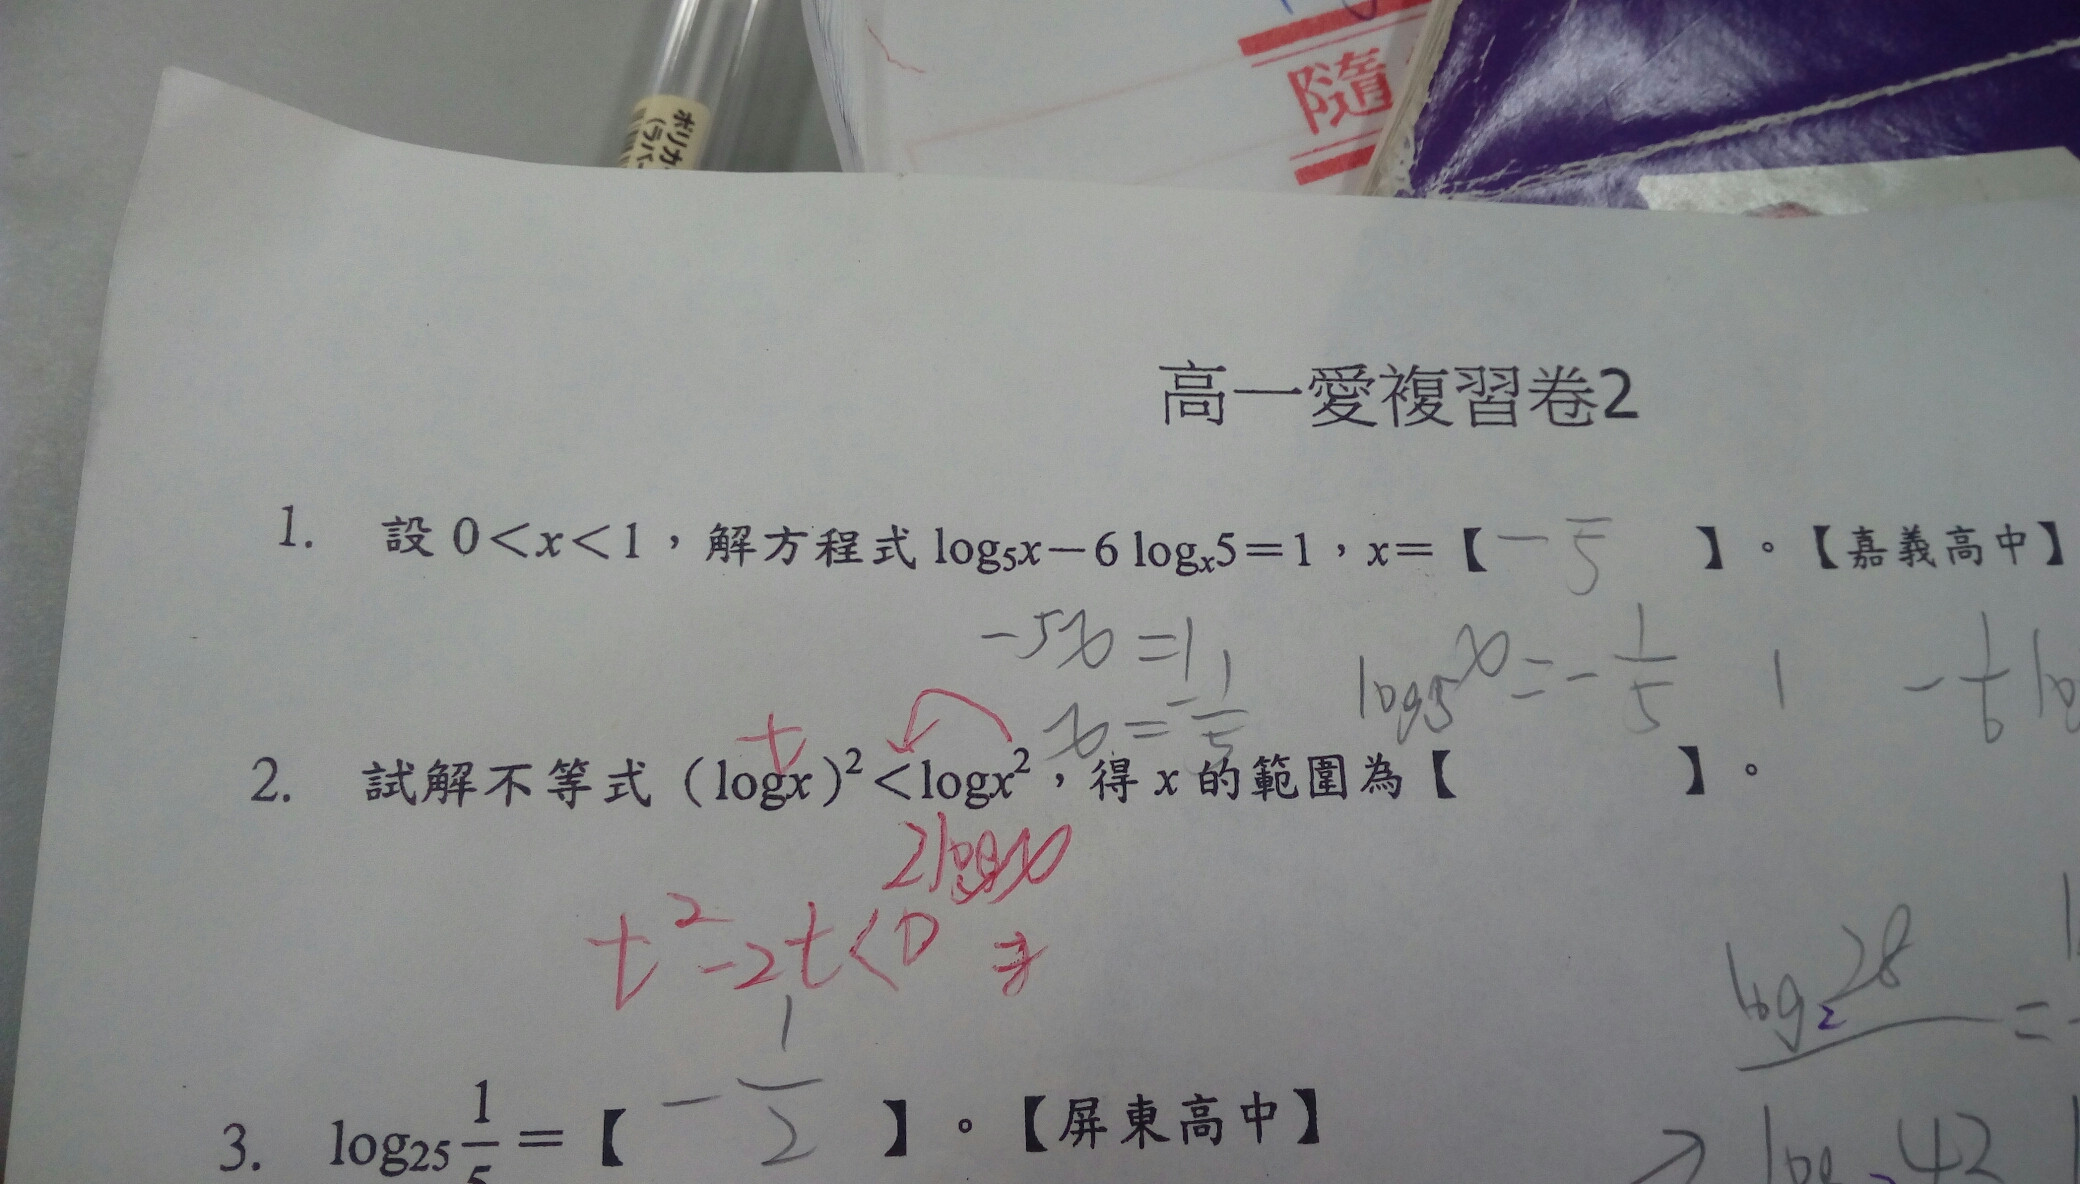 ポリカ
(ラバ
隨
高一愛複習卷2
1. 設 0<x<1，解方程式 log₅x－6 logₓ5＝1，x＝【 － 5 】。【嘉義高中】
-5x=1
x=-1/5
log₅x=-1/5 1 -1/6 log
t
2. 試解不等式（logx）²＜logx²，得 x 的範圍為【 】。
2logx
t²-2t<0
log₂28 =
3. log₂₅ 1/5 ＝【 -1/2 】。【屏東高中】
log 42